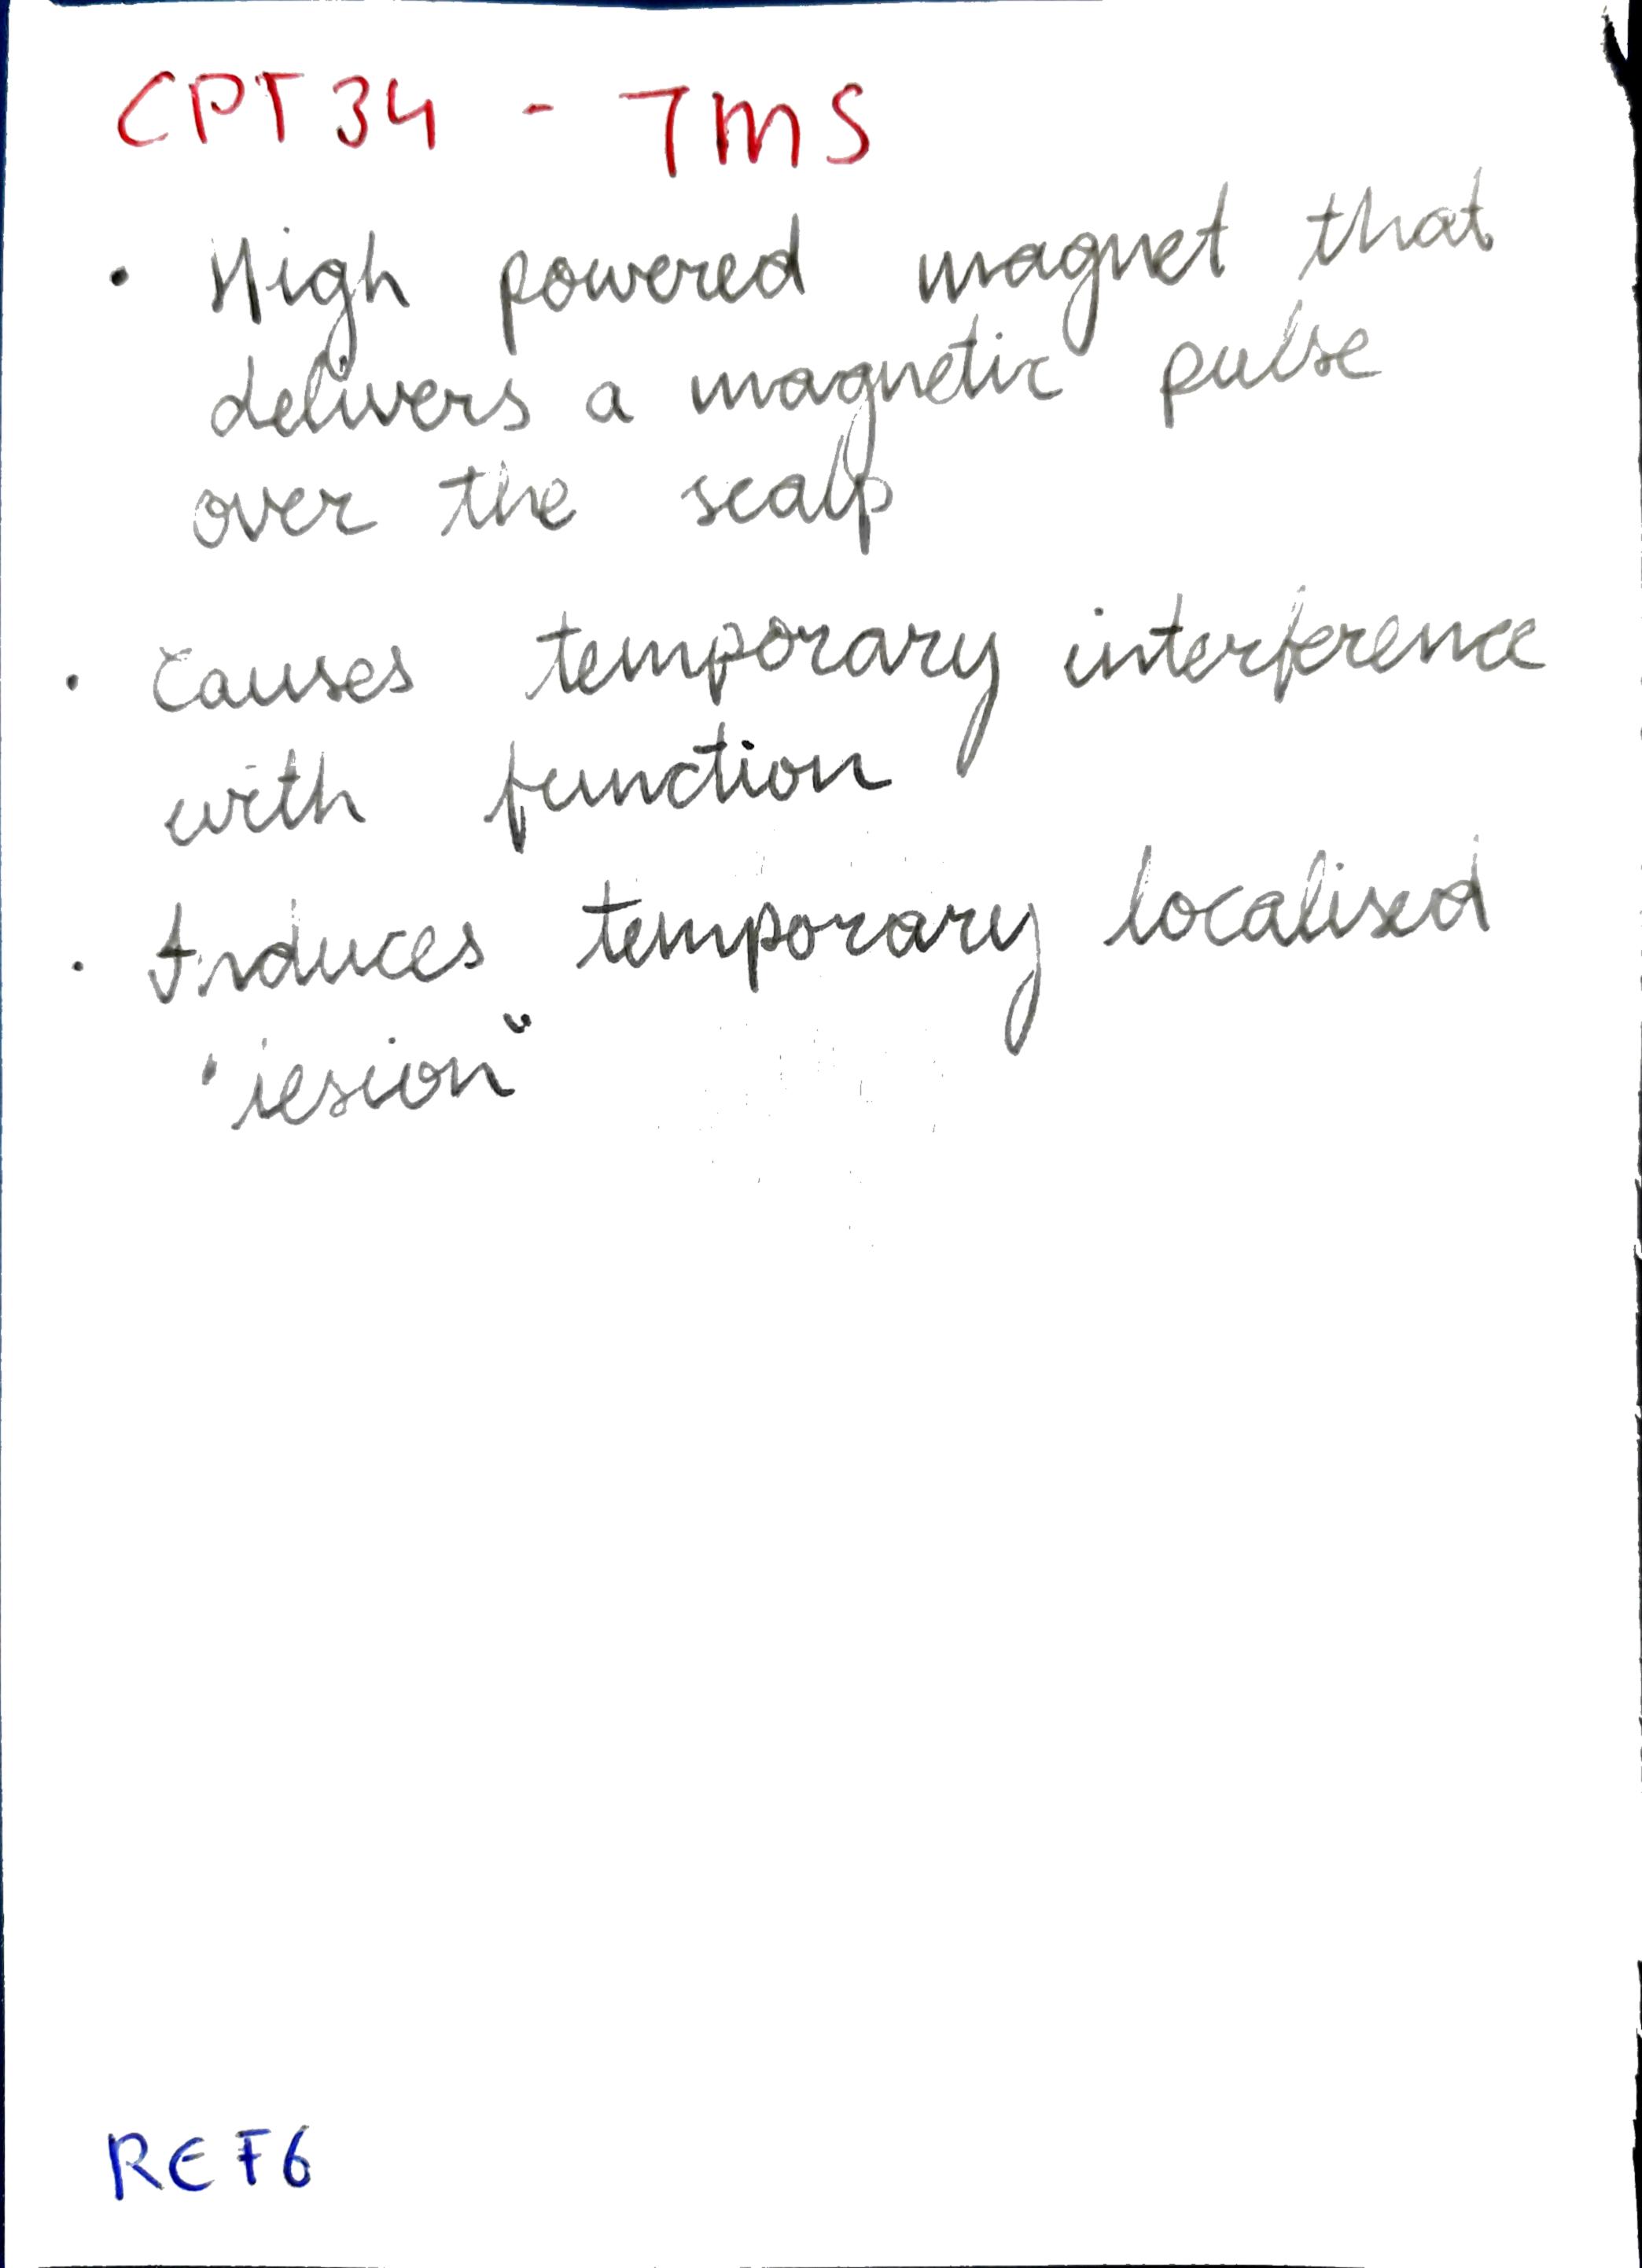 CPT34 - TMS
• High powered magnet that
delivers a magnetic pulse
over the scalp
• causes temporary interference
with function
• Induces temporary localised
"lesion"
REF6